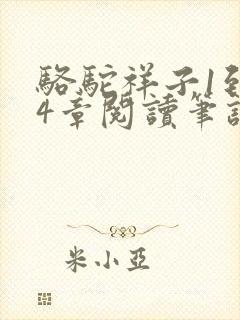 駱駝祥子1到
4章閱讀筆記
米小亞